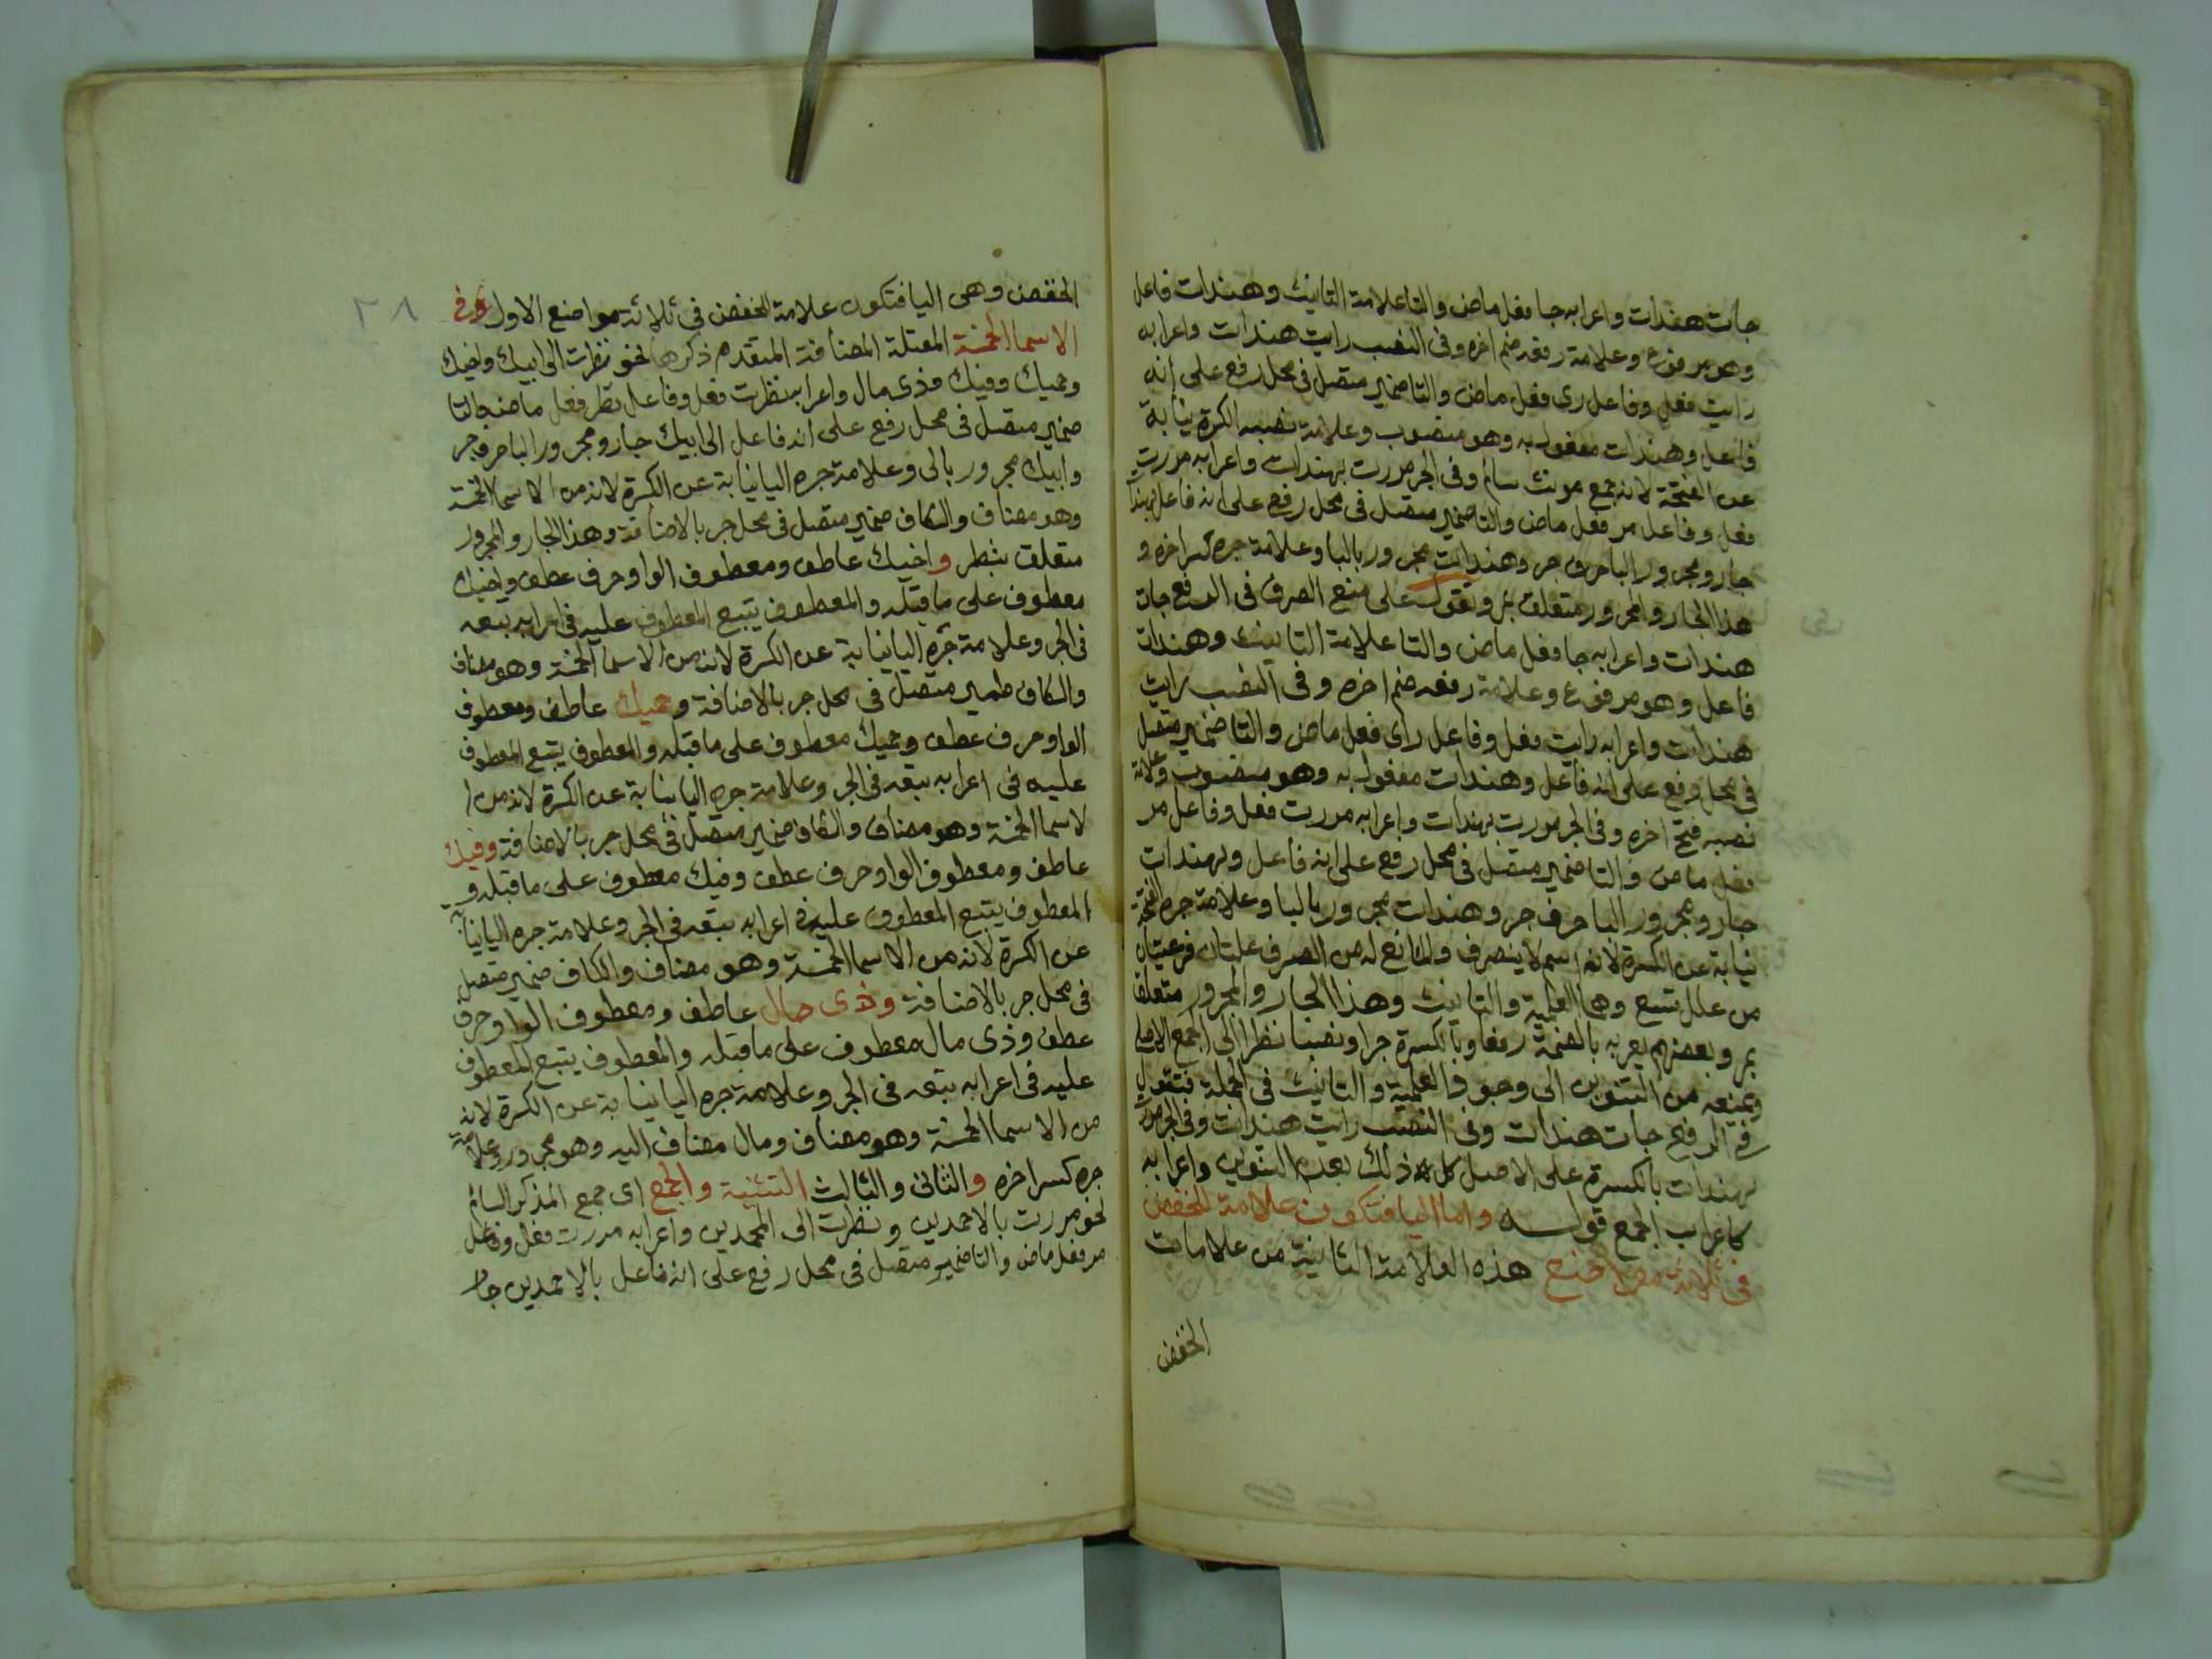 جات هندات واعرابه جا فعل ماض والتا علامة التانيث وهندات فاعل
وهو مرفوع وعلامة رفعه ضم اخره وفى النصب رايت هندات واعرابه
رايت فعل وفاعل رى فعل ماض والتا ضمير متصل فى محل رفع على انه
فاعل وهندات مفعول به وهو منصوب وعلامة نصبه الكسرة نيابة
عن الفتحة لانه جمع مونث سالم وفى الجر مررت بهندات واعرابه مررت
فعل وفاعل مر فعل ماض والتا ضمير متصل فى محل رفع على انه فاعل بهندات
جار ومجرور البا حرف جر وهندات مجرور بالبا وعلامة جره كسر اخره و
هذا الجار والمجرور متعلق بمر وتقول على منع الصرف فى الرفع جات
هندات واعرابه جا فعل ماض والتا علامة التانيث وهندات
فاعل وهو مرفوع وعلامة رفعه ضم اخره وفى النصب رايت
هندات واعرابه رايت فعل وفاعل راى فعل ماض والتا ضمير متصل
فى محل رفع على انه فاعل وهندات مفعول به وهو منصوب وعلامة
نصبه فتح اخره وفى الجر مررت بهندات واعرابه مررت فعل وفاعل مر
فعل ماض والتا ضمير متصل فى محل رفع على انه فاعل وبهندات
جار ومجرور البا حرف جر وهندات مجرور بالبا وعلامة جره الفتحة
نيابة عن الكسرة لانه اسم لا ينصرف والمانع له من الصرف علتان فرعيتان
من علل تسع وهما العلمية والتانيث وهذا الجار والمجرور متعلق
بمر وبعضهم يعربه بالضمة رفعا وبالكسرة جرا ونصبا نظرا الى الجمع الاصلى
ويمنعه من التنوين الى وجود العلمية والتانيث فى الجملة فتقول
فى الرفع جات هندات وفى النصب رايت هندات وفى الجر مررت
بهندات بالكسرة على الاصل كل ذلك بعدم التنوين واعرابه
كاعراب الجمع قوله واما اليا فتكون علامة للخفض
فى ثلاثة مواضع هذه العلامة الثانية من علامات
الخفض
٢٨
الخفض وهى اليا فتكون علامة للخفض فى ثلاثة مواضع الاول فى
الاسما الخمسة المعتلة المضافة المتقدم ذكرها نحو نظرت الى ابيك واخيك
وحميك وفيك وذى مال واعرابه نظرت فعل وفاعل نظر فعل ماض والتا
ضمير متصل فى محل رفع على انه فاعل الى ابيك جار ومجرور البا حرف جر
وابيك مجرور بالى وعلامة جره اليا نيابة عن الكسرة لانه من الاسما الخمسة
وهو مضاف والكاف ضمير متصل فى محل جر بالاضافة وهذا الجار والمجرور
متعلق بنظر واخيك عاطف ومعطوف الواو حرف عطف واخيك
معطوف على ما قبله والمعطوف يتبع المعطوف عليه فى اعرابه تبعه
فى الجر وعلامة جره اليا نيابة عن الكسرة لانه من الاسما الخمسة وهو مضاف
والكاف ضمير متصل فى محل جر بالاضافة وحميك عاطف ومعطوف
الواو حرف عطف وحميك معطوف على ما قبله والمعطوف يتبع المعطوف
عليه فى اعرابه تبعه فى الجر وعلامة جره اليا نيابة عن الكسرة لانه من ا
لاسما الخمسة وهو مضاف والكاف ضمير متصل فى محل جر بالاضافة وفيك
عاطف ومعطوف الواو حرف عطف وفيك معطوف على ما قبله و
المعطوف يتبع المعطوف عليه فى اعرابه تبعه فى الجر وعلامة جره اليا نيابة
عن الكسرة لانه من الاسما الخمسة وهو مضاف والكاف ضمير متصل
فى محل جر بالاضافة وذى مال عاطف ومعطوف الواو حرف
عطف وذى مال معطوف على ما قبله والمعطوف يتبع المعطوف
عليه فى اعرابه تبعه فى الجر وعلامة جره اليا نيابة عن الكسرة لانه
من الاسما الخمسة وهو مضاف ومال مضاف اليه وهو مجرور وعلامة
جره كسر اخره والثانى والثالث التثنية والجمع اى جمع المذكر السالم
نحو مررت بالاحمدين ونظرت الى المحمدين واعرابه مررت فعل وفاعل
مر فعل ماض والتا ضمير متصل فى محل رفع على انه فاعل بالاحمدين جار